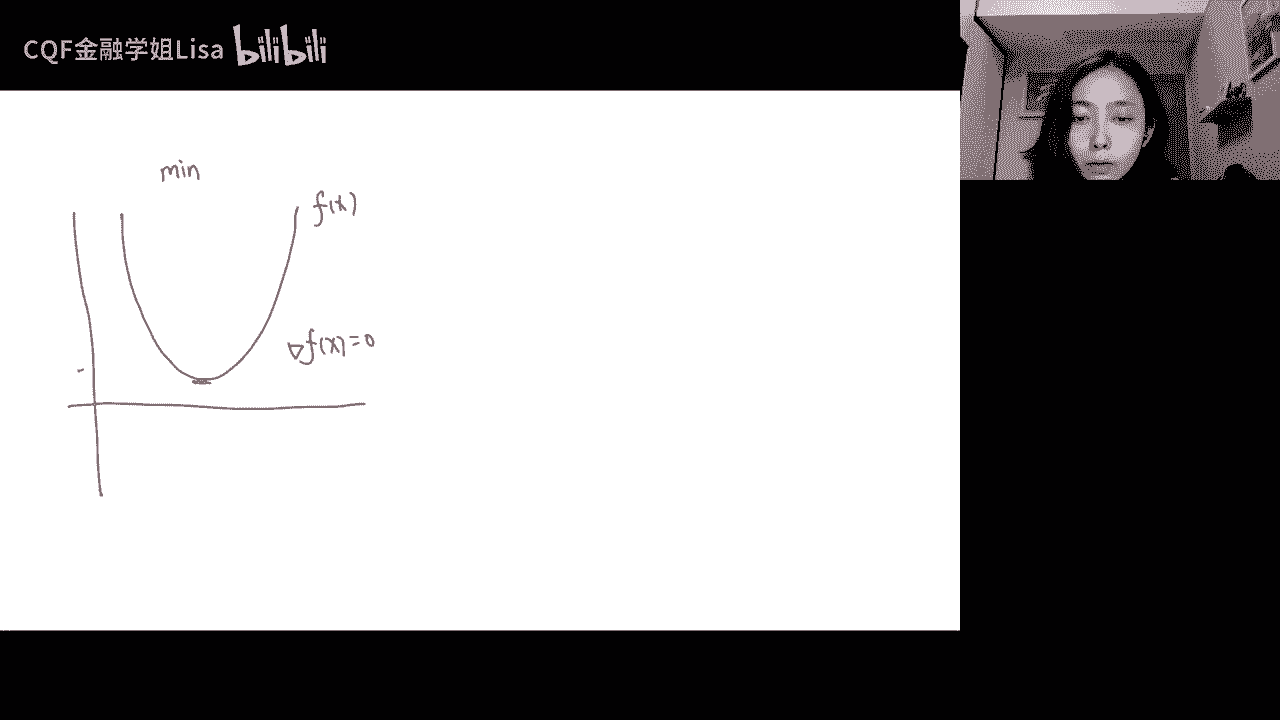 CQF金融学姐Lisa bilibili
min
f(x)
∇f(x)=0